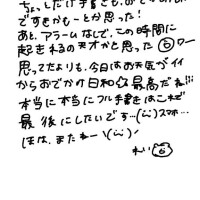 ちょっとだけ手書きも、おと
ですきかも〜とか思った!
あと、アラームなしで、この時間に
起きれるの天才かと思った ワー
思ってたよりも、今日はお天気がイイ
からおでかけ日和☆最高だね!!!
本当に本当にフル手書きはこれで
最後にしたいです…(¨;)スマホ…
ほな、またねー\(¨)/
れい